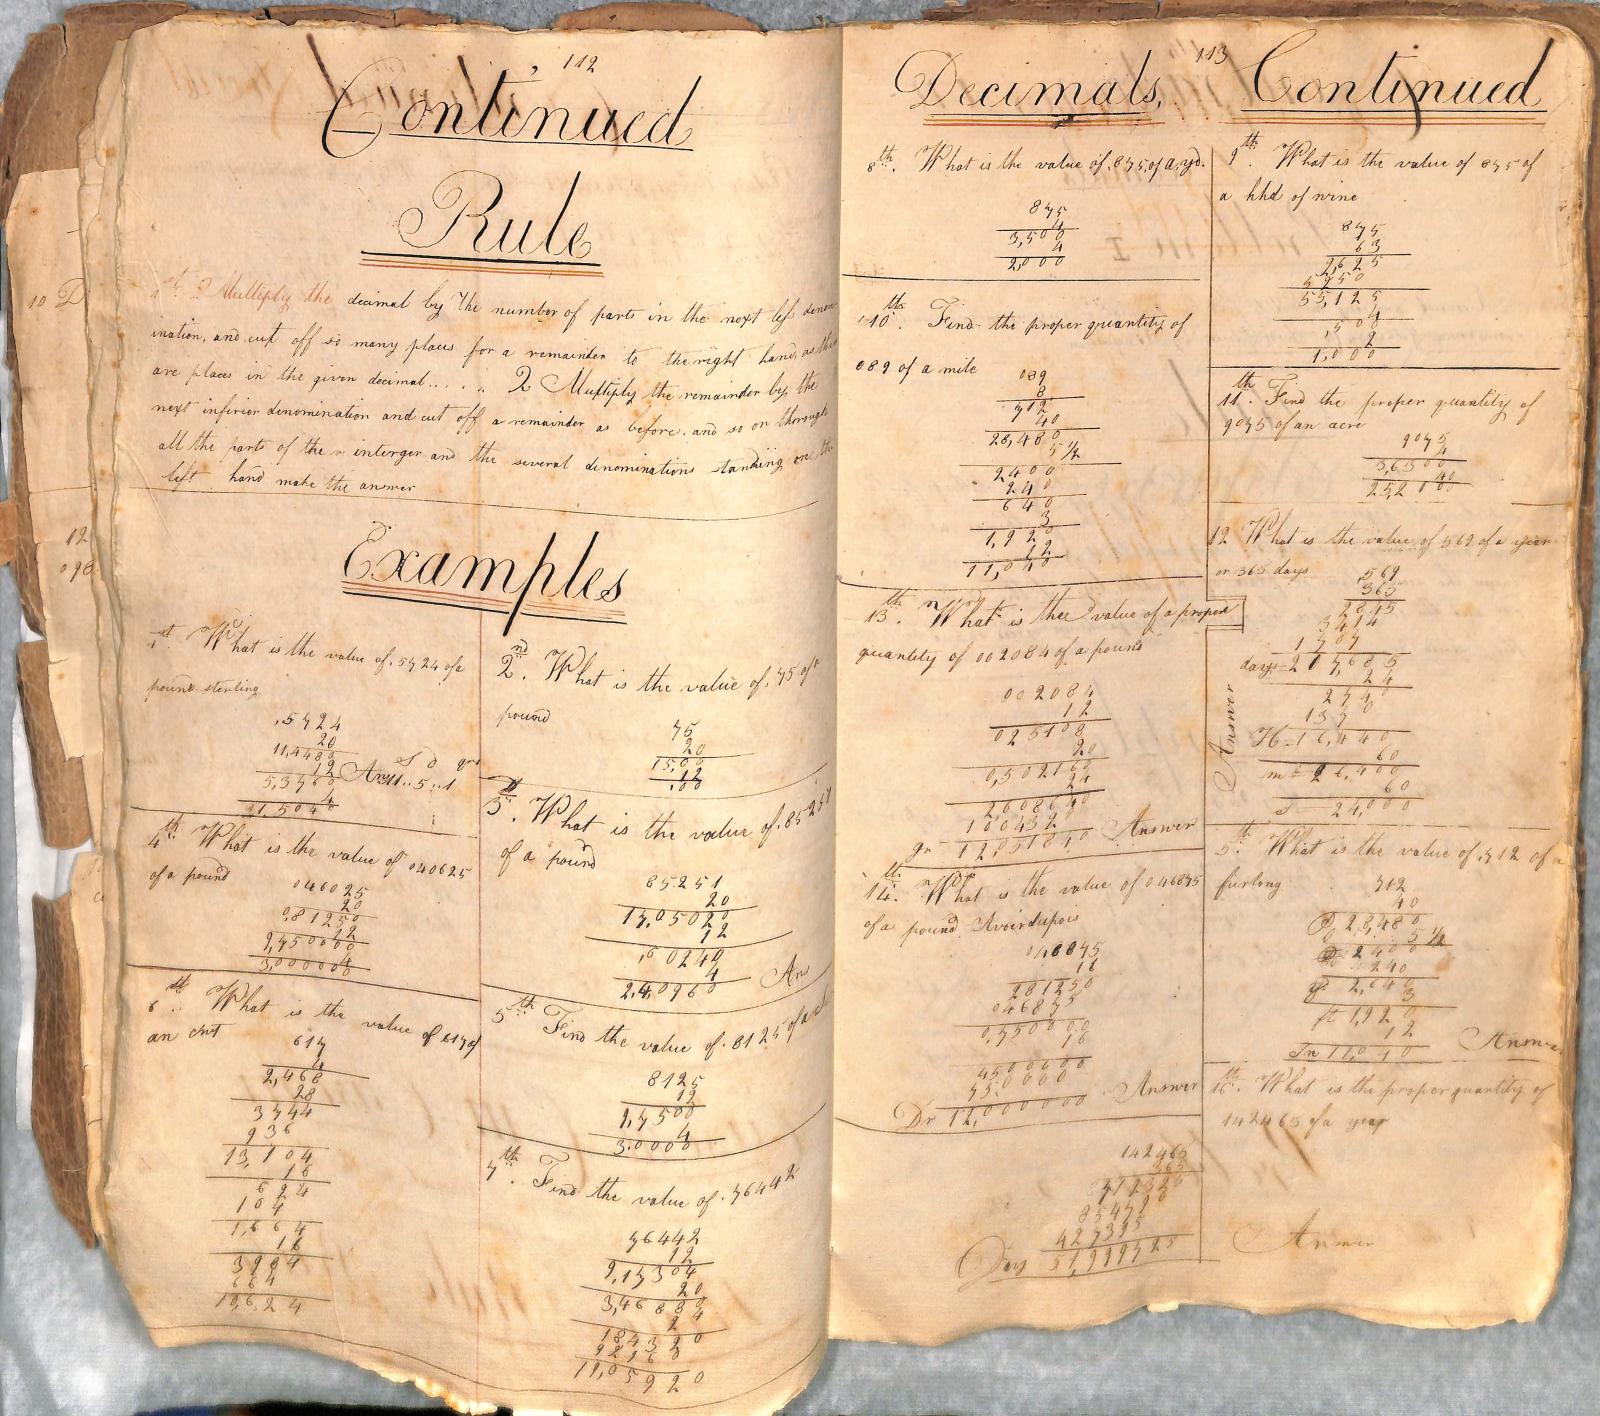 112
Continued
Rule
1st Multiply the decimal by the number of parts in the next less denom
ination, and cut off so many places for a remainder to the right hand, as there
are places in the given decimal..... 2 Multiply the remainder by the
next inferior denomination and cut off a remainder as before. and so on thorough
all the parts of the interger and the several denominations standing on the
left hand make the answer
Examples
1st. What is the value of .5724 of a
pound sterling
.5724
20
11,4480
12
5,3760
4
21,5040
S d qrs
Ans 11..5..1
2nd. What is the value of .75 of a
pound
75
20
15,00
12
,00
3d. What is the value of .85251
of a pound
85251
20
17,05020
12
,60240
4
2,40960
Ans
4th. What is the value of 040625
of a pound
040625
20
0,81250
12
9,750000
4
3,000000
5th Find the value of .8125 of a sh
8125
12
9,7500
4
3.0000
6th. What is the value of 617 of
an cwt
617
4
2,468
28
3744
936
13,104
16
624
104
1,664
16
3984
664
10,624
7th. Find the value of .76442
76442
12
9,17304
20
3,46080
24
184320
92160
11,05920
113
Decimals, Continued
8th. What is the value of .875, of a yd.
875
4
3,500
4
2,000
9th. What is the value of 875 of
a hhd of wine
875
63
2,625
5250
55,125
4
,500
2
1,000
10th. Find the proper quantity of
089 of a mile
089
8
712
40
28,480
5 1/2
2400
240
640
3
1,920
12
11,040
11th. Find the proper quantity of
9075 of an acre
9075
4
3,6300
40
25,2000
12 What is the value of 569 of a year
or 365 days
,569
365
2845
3414
1707
days=207,685
24
2740
1370
H=16,440
60
m=26,400
60
s 24,000
Answer
13th. What is thee value of a proper
quantity of 002084 of a pound
002084
12
025108
20
0,502160
24
2608640
100432
gr 12,051840 Answer
14th. What is the value of 046875
of a pound Avoirdupois
046875
16
281250
046875
0,750000
16
4500000
750000
Dr 12,000000 Answer
5th. What is the value of .712 of a
furlong
712
40
28,480
5 1/2
2400
240
yd 2,640
3
ft 1,920
12
In 11,040 Answer
16th. What is the proper quantity of
142465 of a year
142465
365
712325
854790
427395
Days 51,999725
Answer
10 D
12
098